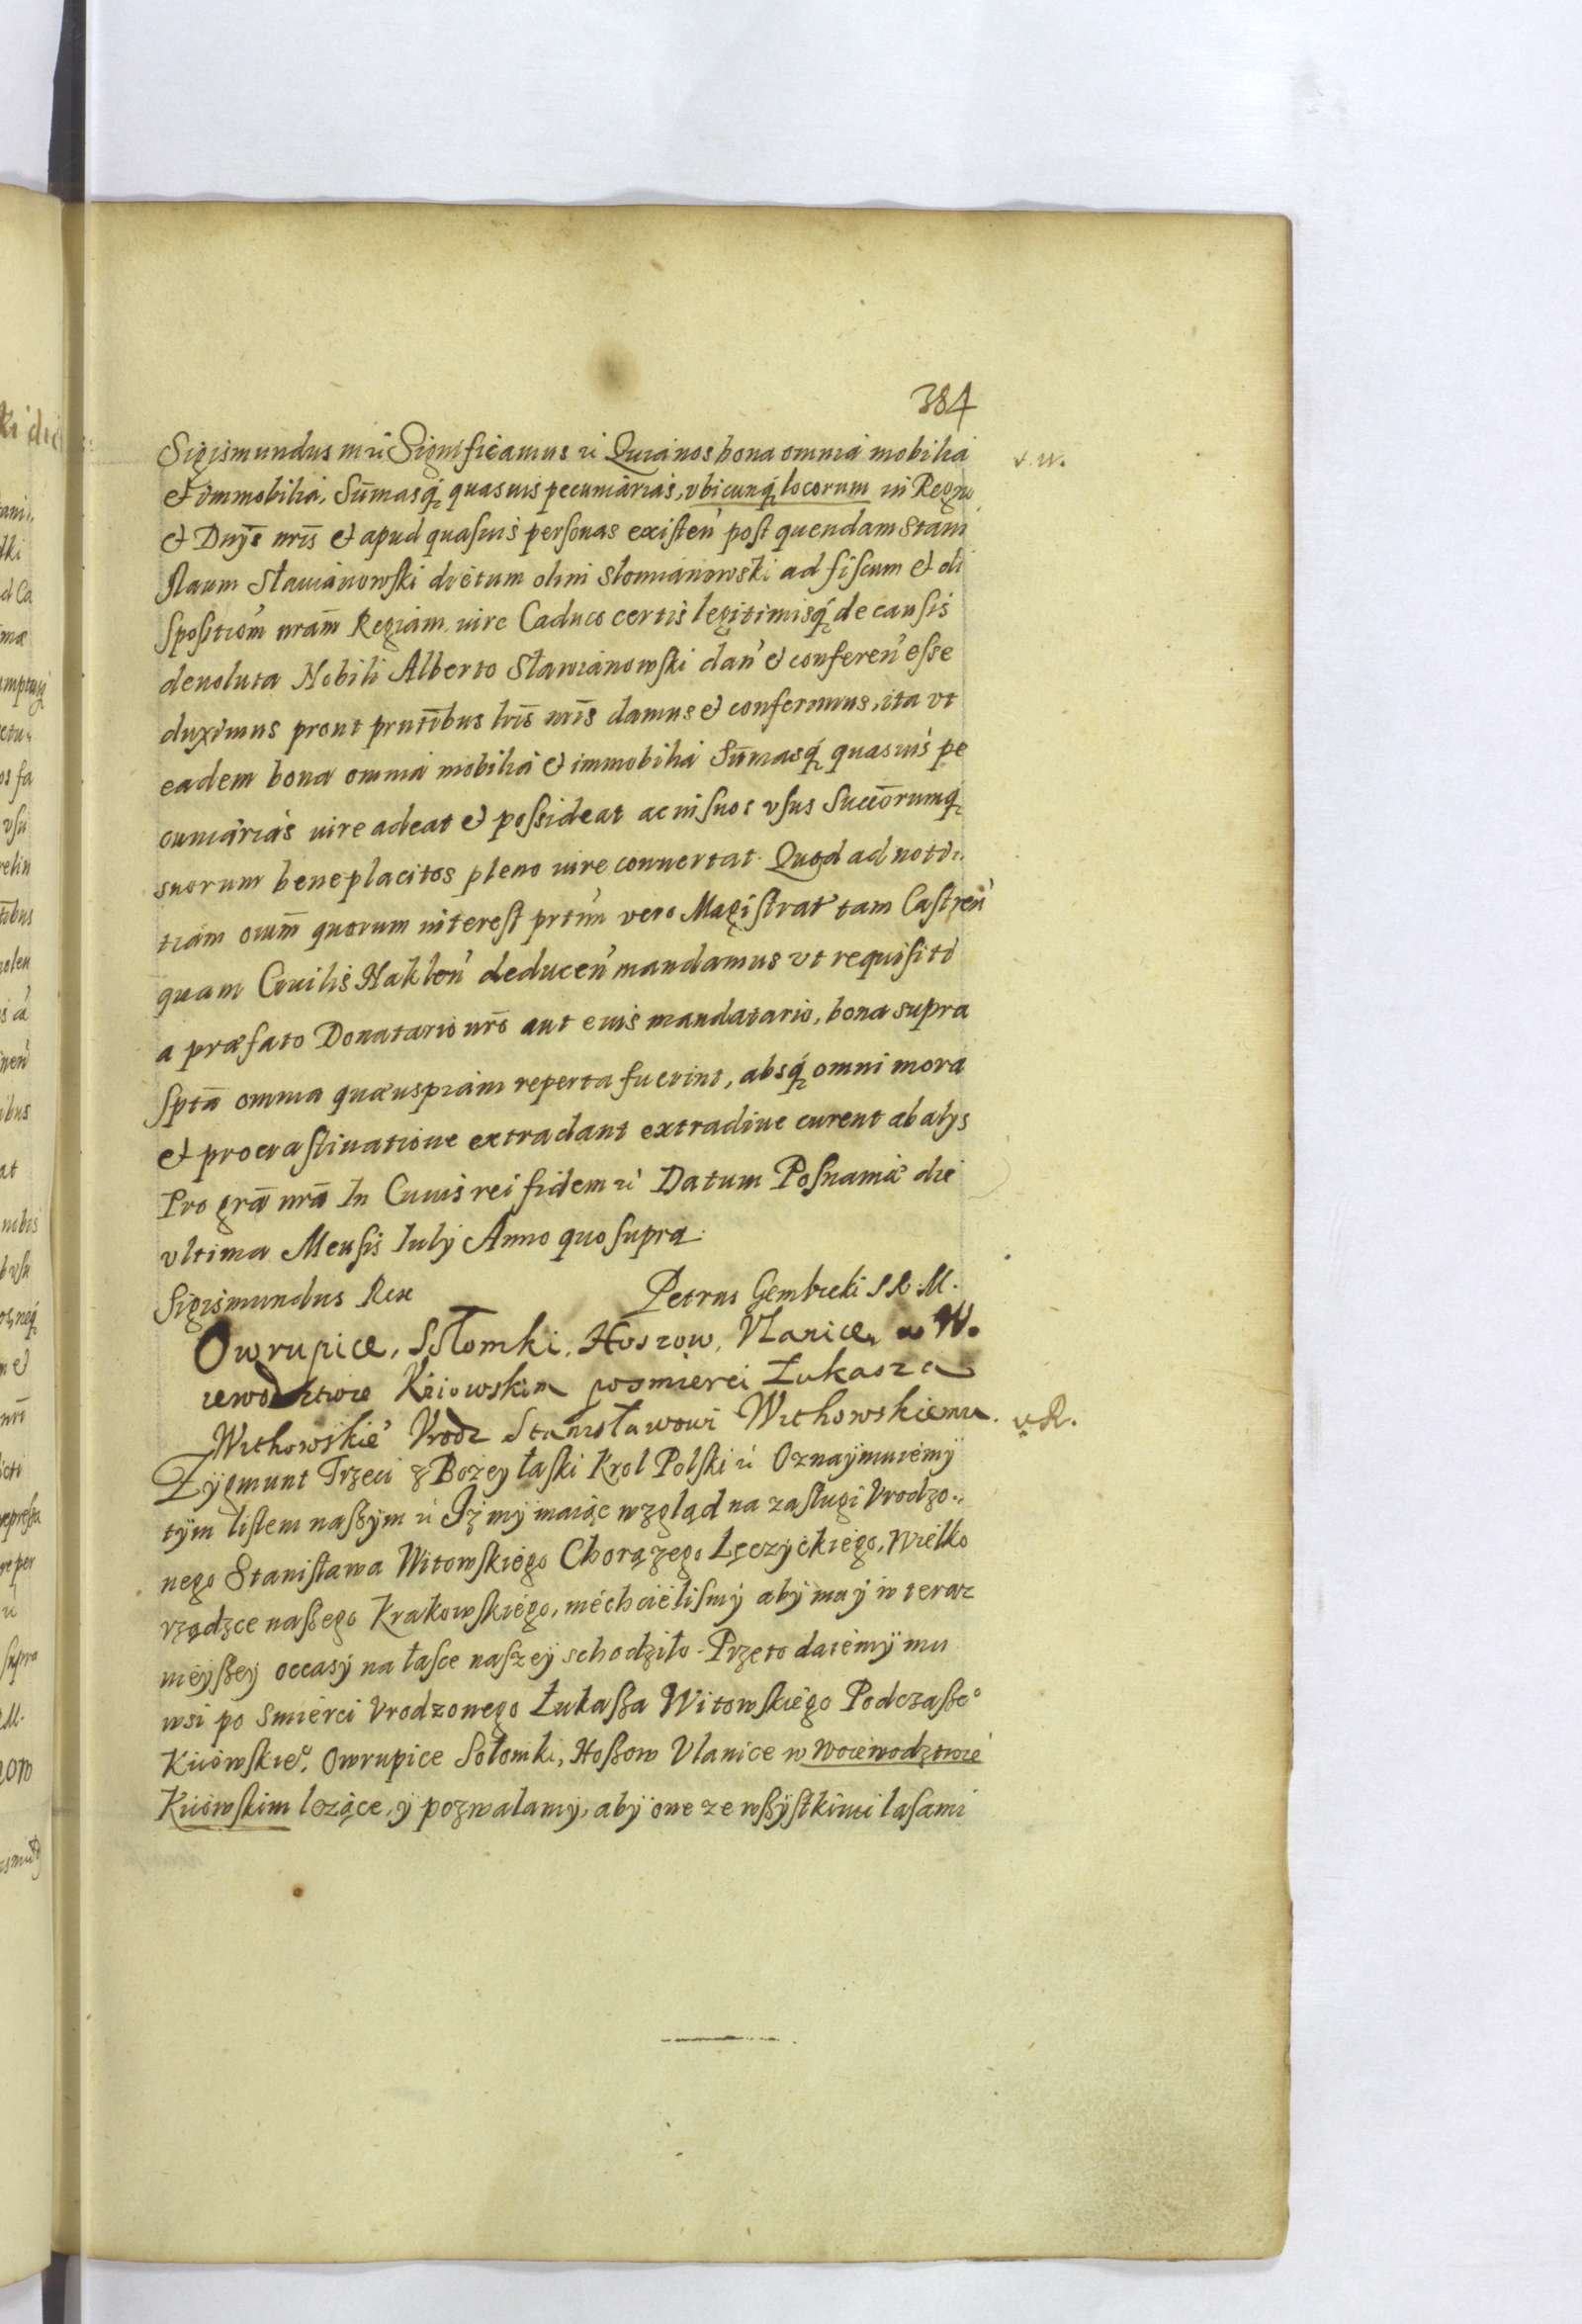 384
Sigismundus m ri Significamus ri Quia nos bona omnia mobilia
et immobilia, Sūmasq́ quasuis pecuniarias, vbicunq́ locorum in Regno
et Dnÿs nrīs et apud quasuis personas existeń post quendam Stani
slaum Sławianowski dictum olim Słomianowski ad fiscum et di
spositioḿ nram̄ Regiam, iure Caduco certis legitimisq́ de causis
deuoluta Nobili Alberto Sławianowski dań et confereń esse
duximus prout prntībus lrīs nrīs damus et conferimus, ita vt
eadem bona omnia mobilia et immobilia Sūmasq́ quasuis pe
cuniarias iure adeat et possideat ac in suos vsus Succōrumq́
suorum beneplacitos pleno iure conuertat. Quod ad noti..
tiam oium̄ quorum interest prtiḿ vero Magistrat' tam Castreń
quam Ciuilis Nakleń deduceń mandamus vt requisiti
a præfato Donatario nrō aut eius mandatario, bona supra
sptā omnia quæ uspiam reperta fuerint, absq́ omni mora
et procrastinatione extradant extradiue curent ab alÿs
Pro grā nrā In Cuius rei fidem ri Datum Posnaniæ die
vltima Mensis Iulÿ Anno quo supra.
Sigismundus Rex Petrus Gembicki S R. M.
Owrupice, Sołomki, Hoszow, Vłanice, w W.
iewodztwie Kiiowskim posmierci Łukasza
Withowskie° Vrodz Stanisławowi Withowskiemu.
Zÿgmunt Trzeci z Bożey łaski Krol Polski ri Oznaÿmuiemÿ
tÿm listem naßÿm ri Iż mÿ maiąc wzgląd na zasługi Vrodzo..
nego Stanisława Witowskiego Chorążego Łęczÿckiego, Wielko
rządzce naßego Krakowskiego, niechcielismÿ abÿ mu ÿ w teraz
nieÿßeÿ occasÿ na łasce naszeÿ schodziło. Przeto daiemÿ mu
wsi po Smierci Vrodzonego Łukaßa Witowskiego Podczaße°
Kiiowskie°. Owrupice Sołomki, Hoßow Vlanice w Woiewodztwie
Kiiowskim leżące, ÿ pozwalamÿ, abÿ one ze wßÿstkimi lasami
v. R.